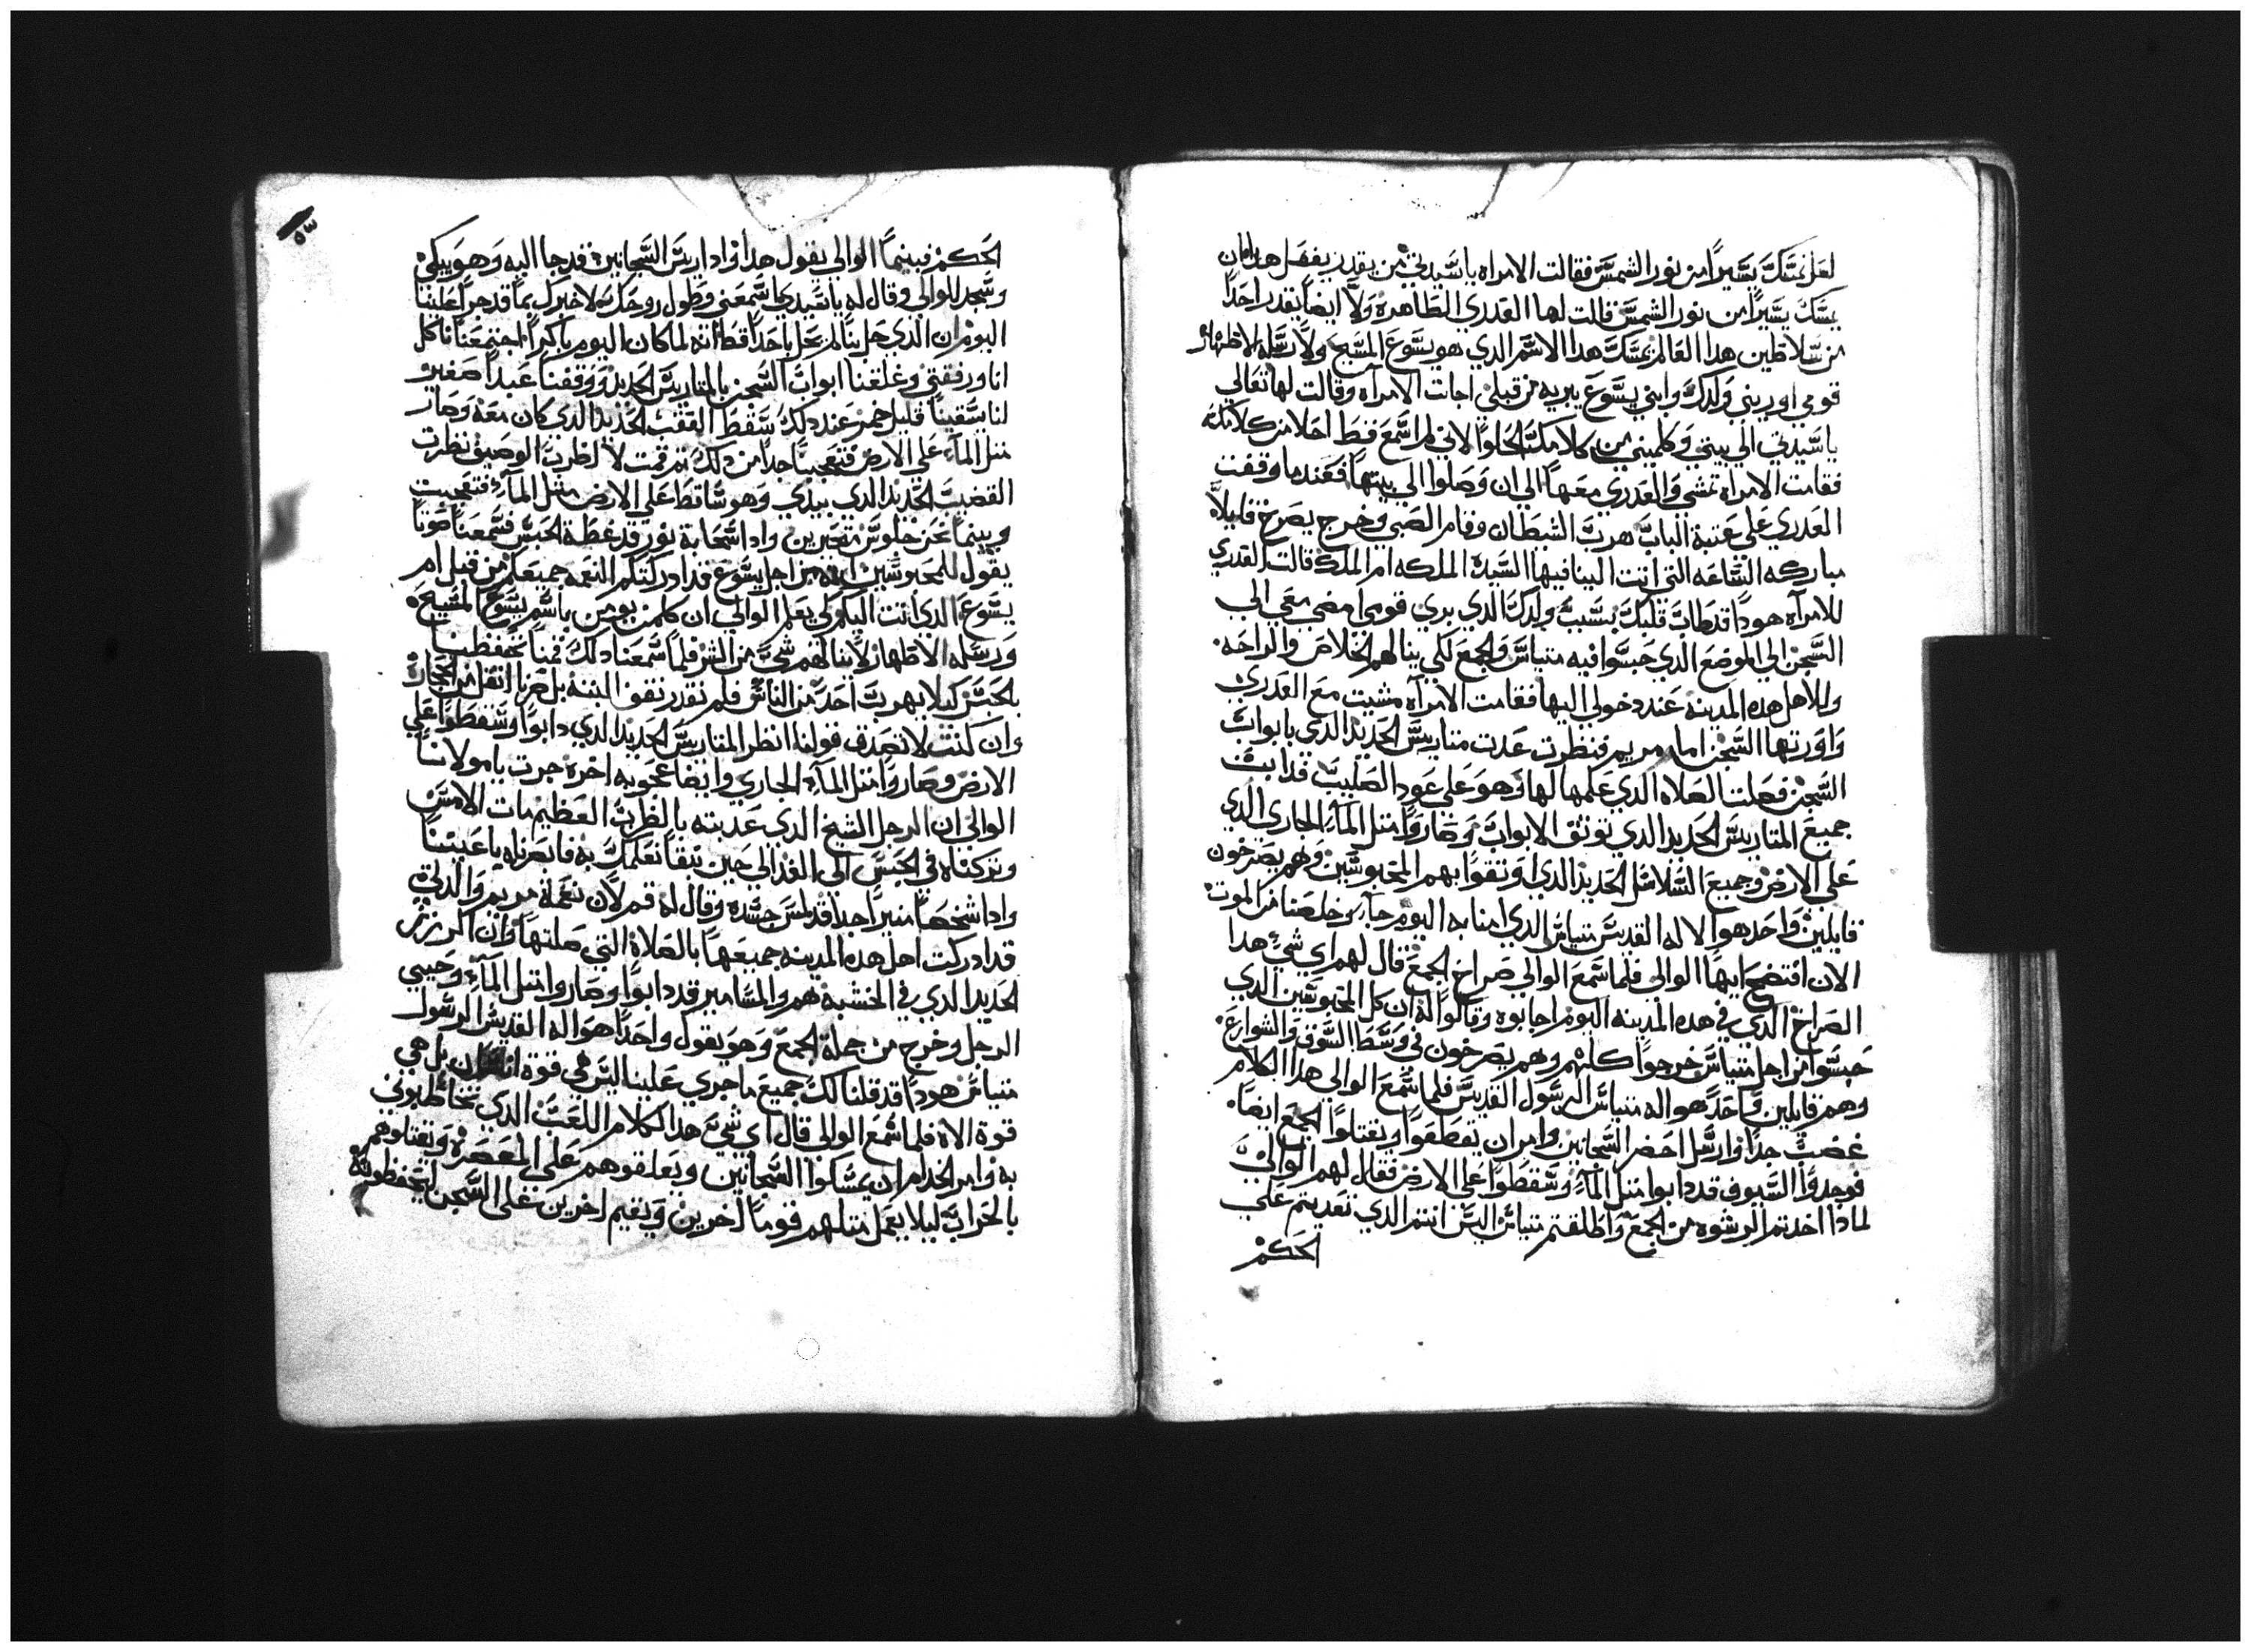 لعل نمسك يسيرا من نور الشمس فقالت الامراه ياستيدتي من يقدر يفعل هدا ان
يمسك يسيرا من نور الشمس قالت لها العدري الطاهره ولا ايضا يقدر احدا
من سلاطين هدا العالم يمسك هدا الاسم الدي هو يسوع المسيح ولا رسله الاطهار
قومي اوريني ولدك وابني يسوع يبريه من قبلي اجات الامراه وقالت لها تعالي
ياستيدتي الي بيتي وكلميني من كلامك الحلوا لاني لم اسمع قط احلا من كلامك
فقامت الامراه تمشي والعدري معها الي ان وصلوا الي بيتها فعند ما وقفت
العدري علي عتبة الباب هرب الشيطان وقام الصبي وخرج يصرخ قايلا
مباركه الساعه التي اتت الينا فيها السيدة الملكه ام الملك قالت العدري
للامراه هودا قد طاب قلبك بسبب ولدك الدي بري قومي امضي معي الي
السجن الي الموضع الدي حبسوا فيه متياس والجمع لكي ينالهم الخلاص والراحه
ولاهل هده المدينه عند دخولي اليها فقامت الامراه مشيت مع العدري
واورتها السجن اما مريم فنظرت عدت متاريس الحديد الدي بابواب
السجن فصلت الصلاه الدي علمها لها وهو علي عود الصليب فدابت
جميع المتاريس الحديد الدي توثق الابواب وصاروا متل المآء الجاري الدي
علي الارض وجميع السلاسل الحديد الدي اوتقوا بهم المحبوسين وهم يصرخون
قايلين واحد هوا الاله القديس متياس الدي امنا به اليوم جآء وخلصنا من الموت
الان افتضح ايها الوالي فلما سمع الوالي صراخ الجمع قال لهم اي شيء هدا
الصراخ الدي في هده المدينه اليوم اجابوه وقالوا له ان كل المحبوسين الدي
حبسوا من اجل متياس خرجوا كلهم وهم يصرخون في وسط السوق والشوارع
وهم قايلين واحدا هو اله متياس الرسول القديس فلما سمع الوالي هدا الكلام
غضب جدا وارسل احضر السجانين وامر ان يقطعوا ويقتلوا الجمع ايضا
فوجدوا السيوف قد دابوا متل المآء وسقطوا علي الارض فقال لهم الوالي
لمادا اخدتم الرشوه من الجمع واطلقتم متياس اليس انتم الدي تعديتم علي
الحكم
٥٣
الحكم فبينما الوالي يقول هدا وادا ريس السجانين قد جا اليه وهو يبكي
وسجد للوالي وقال له ياسيدي اسمعني وطول روحك لاخبرك بما قد جرا علينا
اليوم ان الدي حل بنا لم يحل باحدا قط انه لما كان اليوم باكرا اجتمعنا ناكل
انا ورفقتي وغلقنا ابواب السجن بالمتاريس الحديد ووقفنا عبدا صغير
لنا يسقينا قليل خمر عند دلك سقط القضيب الحديد الدي كان معه وصار
متل المآء علي الارض فتعجبنا جدا من دلك تم قمت لاضرب الوصيف نظرت
القضيب الحديد الدي بيدي وهو ساقط علي الارض متل المآء فتعجبت
وبينما نحن جلوس متحيرين وادا سحابة نور قد غطة الحبس فسمعنا صوتا
يقول للمحبوسين انه من اجل يسوع قد ادركتكم النعمه جميعكم من قبل ام
يسوع الدي اتت اليكم لكي يعلم الوالي ان كلمن يومن باسم يسوع المسيح
ورسله الاطهار لا ينالهم شي من الشر فلما سمعنا دلك قمنا تحفظنا
بالحبس كيلا يهرب احد من الناس فلم نقدر نقف البتة بل صرنا اتقل من الحجارة
وان كنت لا تصدق قولنا انظر المتاريس الحديد الدي دابوا وسقطوا علي
الارض وصاروا متل المآء الجاري وايضا عجوبه اخره جرت يا مولانا
الوالي ان الرجل الشيخ الدي عدبته بالضرب العظيم مات الامس
وتركناه في الحبس الي الغد الي حين نبقا نعلمك به فابصرناه باعيننا
وادا شخصا منيرا جدا قد لمس جسده وقال له قم لان نعمة مريم والدة
قد ادركت اهل هده المدينه جميعها بالصلاة التي صلتها وان الرزز
الحديد الدي في الخشبة هم والمسامير قد دابوا وصاروا متل المآء وحيي
الرجل وخرج من جملة الجمع وهو يقول واحدا هو اله القديس الرسول
متياس هودا قد قلنا لك جميع ما جري علينا اليس هي قوة انسان بل هي
قوة الاه فلما سمع الوالي قال اي شي هدا الكلام اللعب الدي تخاطبوني
به وامر الخدام ان يمسكوا السجانين ويعلقوهم علي المعصرة ويقتلوهم
بالحراب ليلا يعمل متلهم قوما اخرين ويقيم اخرين علي السجن ليحفظونه